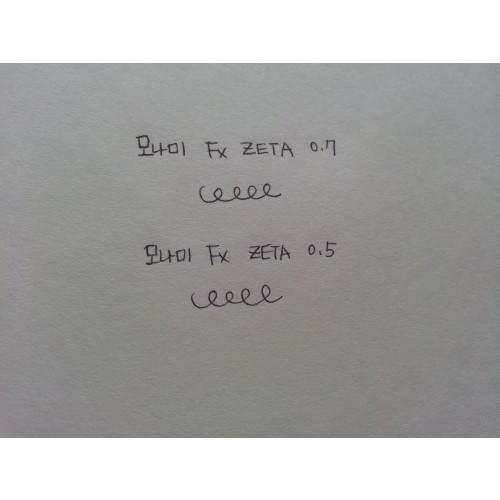 모나미 Fx ZETA 0.7
모나미 Fx ZETA 0.5